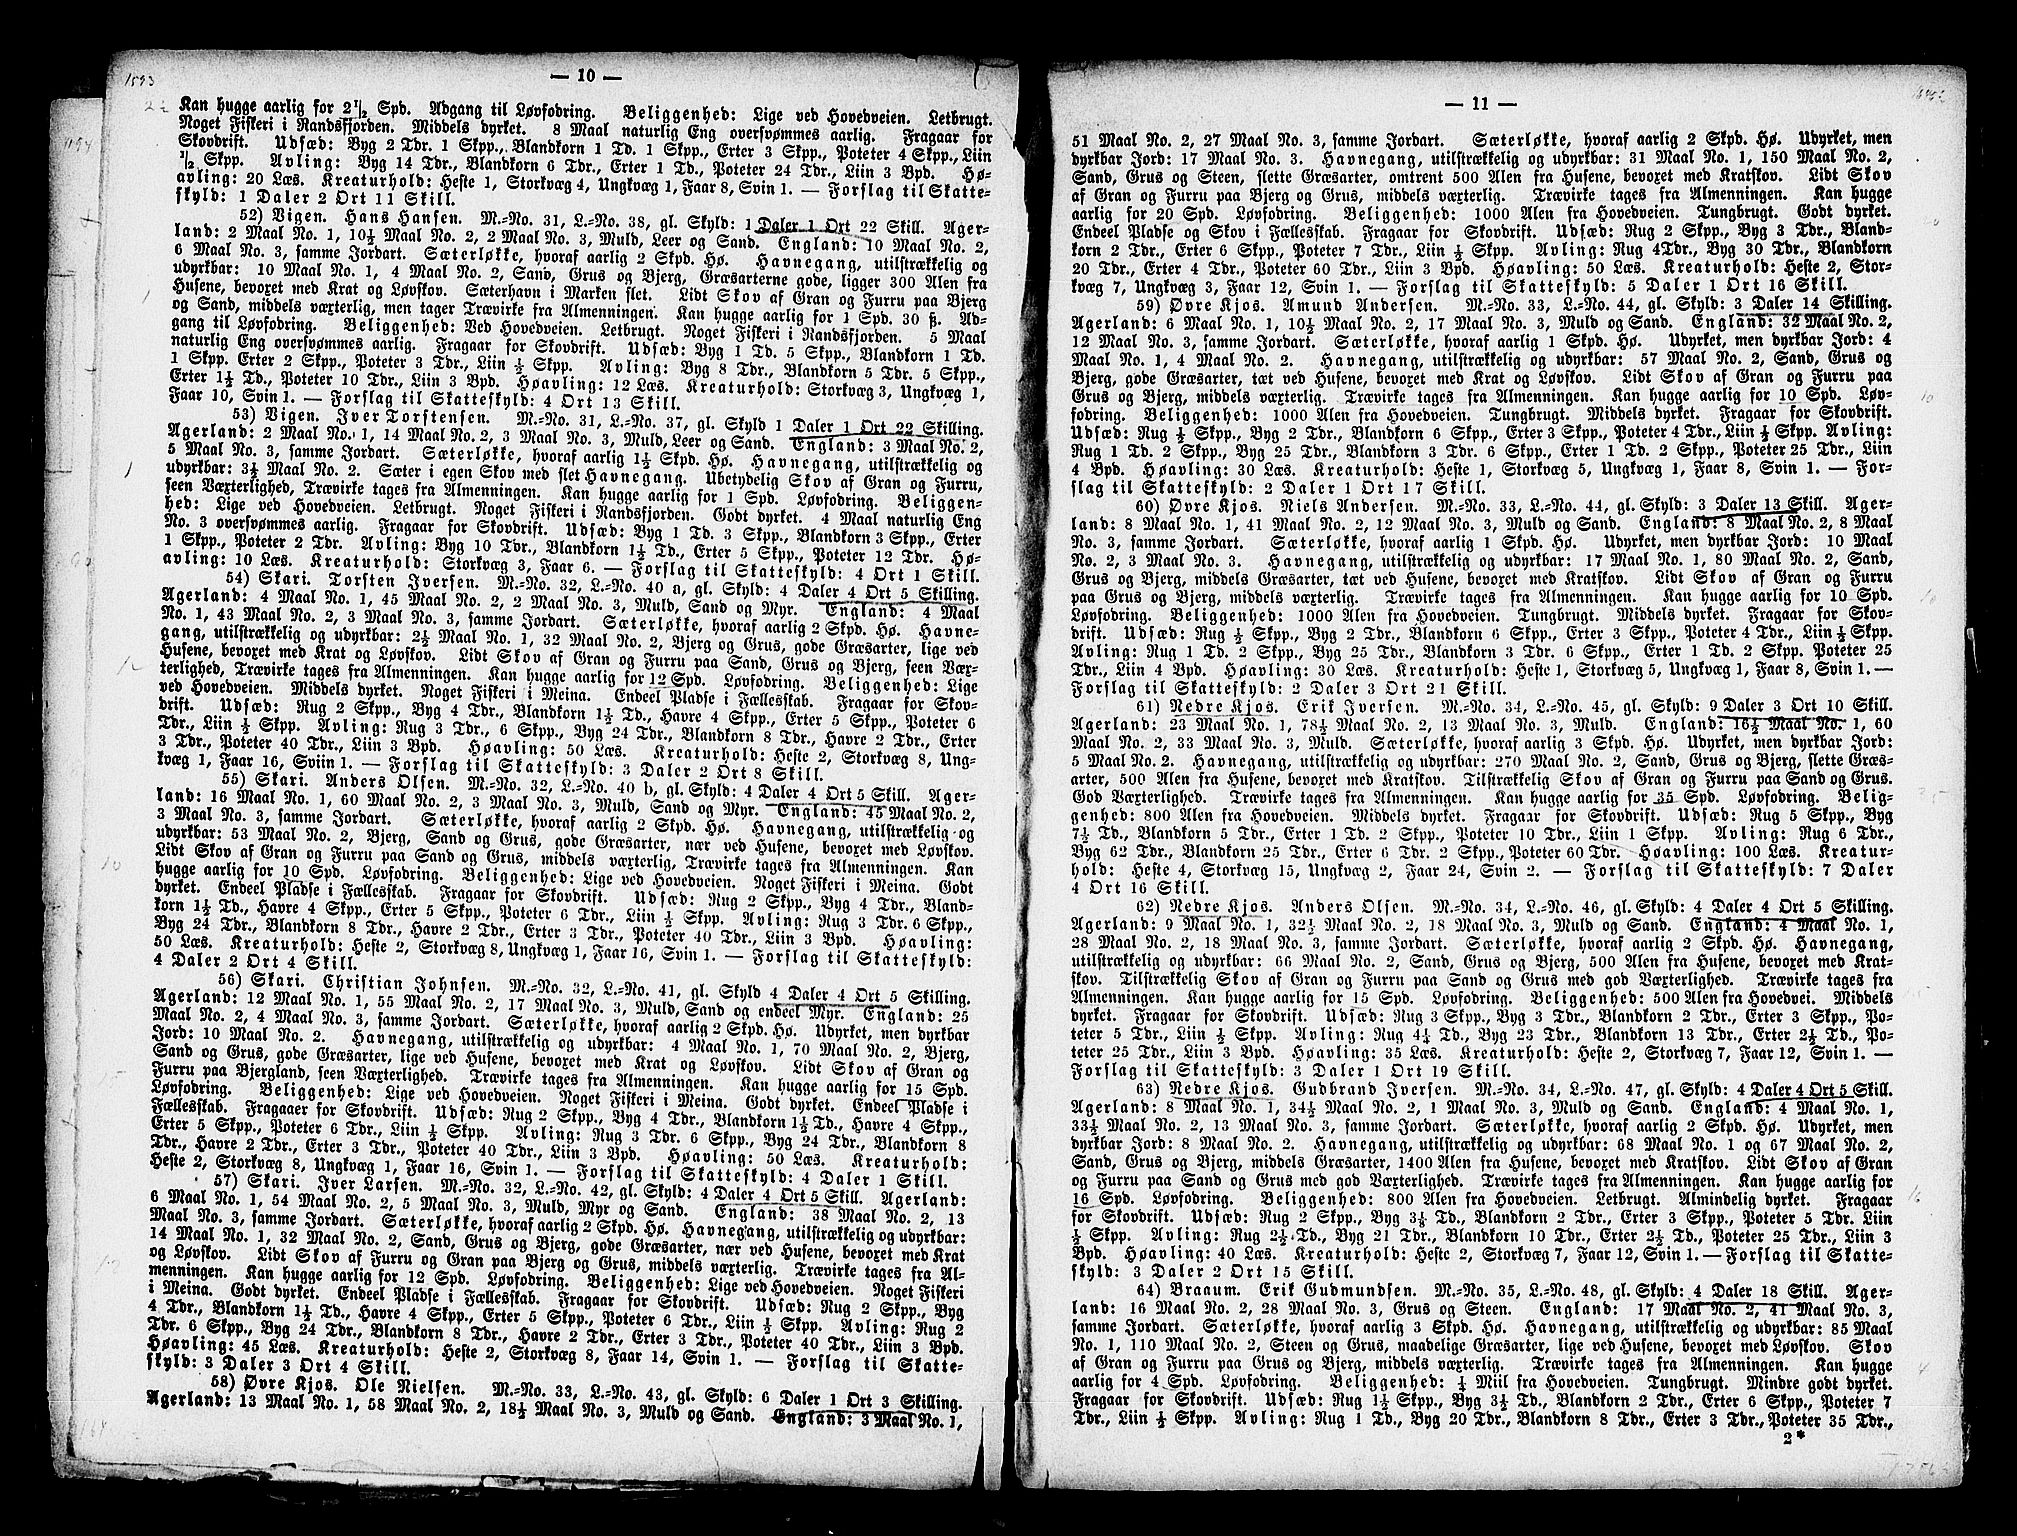 1593
— 10 —
2½
Kan hugge aarlig for 2½ Spd. Adgang til Løvfodring. Beliggenhed: Lige ved Hovedveien. Letbrugt.
Noget Fiskeri i Randsfjorden. Middels dyrket. 8 Maal naturlig Eng oversvømmes aarlig. Fragaar for
Skovdrift. Udsæd: Byg 2 Tdr. 1 Skpp., Blandkorn 1 Td. 1 Skpp., Erter 3 Skpp., Poteter 4 Skpp., Liin
½ Skpp. Avling: Byg 14 Tdr., Blandkorn 6 Tdr., Erter 1 Td., Poteter 24 Tdr., Liin 3 Bpd. Hø-
avling: 20 Læs. Kreaturhold: Heste 1, Storkvæg 4, Ungkvæg 1, Faar 8, Svin 1. — Forslag til Skatte-
skyld: 1 Daler 2 Ort 11 Skill.
52) Vigen. Hans Hansen. M.-No. 31, L.-No. 38, gl. Skyld: 1 Daler 1 Ort 22 Skill. Ager-
land: 2 Maal No. 1, 10½ Maal No. 2, 2 Maal No. 3, Muld, Leer og Sand. England: 10 Maal No. 2,
6 Maal No. 3, samme Jordart. Sæterløkke, hvoraf aarlig 2 Skpd. Hø. Havnegang, utilstrækkelig og
udyrkbar: 10 Maal No. 1, 4 Maal No. 2, Sand, Grus og Bjerg, Græsarterne gode, ligger 300 Alen fra
Husene, bevoxet med Krat og Løvskov. Sæterhavn i Marken slet. Lidt Skov af Gran og Furru paa Bjerg
og Sand, middels væxterlig, men tager Trævirke fra Almenningen. Kan hugge aarlig for 1 Spd. 30 ß. Ad-
gang til Løvfodring. Beliggenhed: Ved Hovedveien. Letbrugt. Noget Fiskeri i Randsfjorden. 5 Maal
naturlig Eng oversvømmes aarlig. Fragaar for Skovdrift. Udsæd: Byg 1 Td. 5 Skpp., Blandkorn 1 Td.
1 Skpp. Erter 2 Skpp., Poteter 3 Tdr., Liin ½ Skpp. Avling: Byg 8 Tdr., Blandkorn 5 Tdr. 5 Skpp.,
Erter 1½ Td., Poteter 10 Tdr., Liin 3 Bpd. Høavling: 12 Læs. Kreaturhold: Storkvæg 3, Ungkvæg 1,
Faar 10, Svin 1. — Forslag til Skatteskyld: 4 Ort 13 Skill.
53) Vigen. Iver Torstensen. M.-No. 31, L.-No. 37, gl. Skyld 1 Daler 1 Ort 22 Skilling.
Agerland: 2 Maal No. 1, 14 Maal No. 2, 3 Maal No. 3, Muld, Leer og Sand. England: 3 Maal No. 2,
5 Maal No. 3, samme Jordart. Sæterløkke, hvoraf aarlig 1½ Skpd. Hø. Havnegang, utilstrækkelig og
udyrkbar: 3½ Maal No. 2. Sæter i egen Skov med slet Havnegang. Ubetydelig Skov af Gran og Furru,
seen Væxterlighed, Trævirke tages fra Almenningen. Kan hugge aarlig for 1 Spd. Løvfodring. Beliggen-
hed: Lige ved Hovedveien. Letbrugt. Noget Fiskeri i Randsfjorden. Godt dyrket. 4 Maal naturlig Eng
No. 3 oversvømmes aarlig. Fragaar for Skovdrift. Udsæd: Byg 1 Td. 3 Skpp., Blandkorn 3 Skpp., Erter
1 Skpp., Poteter 2 Tdr. Avling: Byg 10 Tdr., Blandkorn 1½ Td., Erter 5 Skpp., Poteter 12 Tdr. Hø-
avling: 10 Læs. Kreaturhold: Storkvæg 3, Faar 6. — Forslag til Skatteskyld: 4 Ort 1 Skill.
54) Skari. Torsten Iversen. M.-No. 32, L.-No. 40 a, gl. Skyld: 4 Daler 4 Ort 5 Skilling.
Agerland: 4 Maal No. 1, 45 Maal No. 2, 2 Maal No. 3, Muld, Sand og Myr. England: 4 Maal
No. 1, 43 Maal No. 2, 3 Maal No. 3, samme Jordart. Sæterløkke, hvoraf aarlig 2 Skpd. Hø. Havne-
gang, utilstrækkelig og udyrkbar: 2½ Maal No. 1, 32 Maal No. 2, Bjerg og Grus, gode Græsarter, lige ved
Husene, bevoxet med Krat og Løvskov. Lidt Skov af Gran og Furru paa Sand, Grus og Bjerg, seen Væx-
terlighed, Trævirke tages fra Almenningen. Kan hugge aarlig for 12 Spd. Løvfodring. Beliggenhed: Lige
ved Hovedveien. Middels dyrket. Noget Fiskeri i Meina. Endeel Pladse i Fællesskab. Fragaar for Skov-
drift. Udsæd: Rug 2 Skpp., Byg 4 Tdr., Blandkorn 1½ Td., Havre 4 Skpp., Erter 5 Skpp., Poteter 6
Tdr., Liin ½ Skpp. Avling: Rug 3 Tdr., 6 Skpp., Byg 24 Tdr., Blandkorn 8 Tdr., Havre 2 Tdr., Erter
3 Tdr., Poteter 40 Tdr., Liin 3 Bpd. Høavling: 50 Læs. Kreaturhold: Heste 2, Storkvæg 8, Ung-
kvæg 1, Faar 16, Sviin 1. — Forslag til Skatteskyld: 3 Daler 2 Ort 8 Skill.
55) Skari. Anders Olsen. M.-No. 32, L.-No. 40 b, gl. Skyld: 4 Daler 4 Ort 5 Skill. Ager-
land: 16 Maal No. 1, 60 Maal No. 2, 3 Maal No. 3, Muld, Sand og Myr. England: 45 Maal No. 2,
3 Maal No. 3, samme Jordart. Sæterløkke, hvoraf aarlig 2 Skpd. Hø. Havnegang, utilstrækkelig og
udyrkbar: 53 Maal No. 2, Bjerg, Sand og Grus, gode Græsarter, nær ved Husene, bevoxet med Løvskov.
Lidt Skov af Gran og Furru paa Sand og Grus, middels væxterlig, Trævirke tages fra Almenningen. Kan
hugge aarlig for 10 Spd. Løvfodring. Beliggenhed: Lige ved Hovedveien. Noget Fiskeri i Meina. Godt
dyrket. Endeel Pladse i Fællesskab. Fragaar for Skovdrift. Udsæd: Rug 2 Skpp., Byg 4 Tdr., Bland-
korn 1½ Td., Havre 4 Skpp., Erter 5 Skpp., Poteter 6 Tdr., Liin ½ Skpp. Avling: Rug 3 Tdr. 6 Skpp.,
Byg 24 Tdr., Blandkorn 8 Tdr., Havre 2 Tdr., Erter 3 Tdr., Poteter 40 Tdr., Liin 3 Bpd. Høavling:
50 Læs. Kreaturhold: Heste 2, Storkvæg 8, Ungkvæg 1, Faar 16, Svin 1. — Forslag til Skatteskyld:
4 Daler 2 Ort 4 Skill.
56) Skari. Christian Johnsen. M.-No. 32, L.-No. 41, gl. Skyld 4 Daler 4 Ort 5 Skilling.
Agerland: 12 Maal No. 1, 55 Maal No. 2, 17 Maal No. 3, Muld, Sand og endeel Myr. England: 25
Maal No. 2, 4 Maal No. 3, samme Jordart. Sæterløkke, hvoraf aarlig 2 Skpd. Hø. Udyrket, men dyrkbar
Jord: 10 Maal No. 2. Havnegang, utilstrækkelig og udyrkbar: 4 Maal No. 1, 70 Maal No. 2, Bjerg,
Sand og Grus, gode Græsarter, lige ved Husene, bevoxet med Krat og Løvskov. Lidt Skov af Gran og
Furru paa Bjergland, seen Væxterlighed. Trævirke tages fra Almenningen. Kan hugge aarlig for 15 Spd.
Løvfodring. Beliggenhed: Lige ved Hovedveien. Noget Fiskeri i Meina. Godt dyrket. Endeel Pladse i
Fællesskab. Fragaaer for Skovdrift. Udsæd: Rug 2 Skpp., Byg 4 Tdr., Blandkorn 1½ Td., Havre 4 Skpp.,
Erter 5 Skpp., Poteter 6 Tdr., Liin ½ Skpp. Avling: Rug 3 Tdr. 6 Skpp., Byg 24 Tdr., Blandkorn 8
Tdr., Havre 2 Tdr., Erter 3 Tdr., Poteter 40 Tdr., Liin 3 Bpd. Høavling: 50 Læs. Kreaturhold:
Heste 2, Storkvæg 8, Ungkvæg 1, Faar 16, Svin 1. — Forslag til Skatteskyld: 4 Daler 1 Skill.
57) Skari. Iver Larsen. M.-No. 32, L.-No. 42, gl. Skyld: 4 Daler 4 Ort 5 Skill. Agerland:
6 Maal No. 1, 54 Maal No. 2, 5 Maal No. 3, Muld, Myr og Sand. England: 38 Maal No. 2, 13
Maal No. 3, samme Jordart. Sæterløkke, hvoraf aarlig 2 Skpd. Hø. Havnegang, utilstrækkelig og udyrkbar:
14 Maal No. 1, 32 Maal No. 2, Sand, Grus og Bjerg, gode Græsarter, nær ved Husene, bevoxet med Krat
og Løvskov. Lidt Skov af Furru og Gran paa Bjerg og Grus, middels væxterlig. Trævirke tages fra Al-
menningen. Kan hugge aarlig for 12 Spd. Løvfodring. Beliggenhed: Lige ved Hovedveien. Noget Fiskeri
i Meina. Godt dyrket. Endeel Pladse i Fællesskab. Fragaar for Skovdrift. Udsæd: Rug 2 Skpp., Byg
4 Tdr., Blandkorn 1½ Td., Havre 4 Skpp., Erter 5 Skpp., Poteter 6 Tdr., Liin ½ Skpp. Avling: Rug 2
Tdr. 6 Skpp., Byg 24 Tdr., Blandkorn 8 Tdr., Havre 2 Tdr., Erter 3 Tdr., Poteter 40 Tdr., Liin 3 Bpd.
Høavling: 45 Læs. Kreaturhold: Heste 2, Storkvæg 8, Faar 14, Svin 1. — Forslag til Skatte-
skyld: 3 Daler 3 Ort 4 Skill.
58) Øvre Kjos. Ole Nielsen. M.-No. 33, L.-No. 43, gl. Skyld: 6 Daler 1 Ort 3 Skilling.
Agerland: 13 Maal No. 1, 58 Maal No. 2, 18½ Maal No. 3, Muld og Sand. England: 3 Maal No. 1,
— 11 —
51 Maal No. 2, 27 Maal No. 3, samme Jordart. Sæterløkke, hvoraf aarlig 2 Skpd. Hø. Udyrket, men
dyrkbar Jord: 17 Maal No. 3. Havnegang, utilstrækkelig og udyrkbar: 31 Maal No. 1, 150 Maal No. 2,
Sand, Grus og Steen, slette Græsarter, omtrent 500 Alen fra Husene, bevoxet med Kratskov. Lidt Skov
af Gran og Furru paa Bjerg og Grus, middels væxterlig. Trævirke tages fra Almenningen. Kan hugge
aarlig for 20 Spd. Løvfodring. Beliggenhed: 1000 Alen fra Hovedveien. Tungbrugt. Godt dyrket.
Endeel Pladse og Skov i Fællesskab. Fragaar for Skovdrift. Udsæd: Rug 2 Skpp., Byg 3 Tdr., Bland-
korn 2 Tdr., Erter 6 Skpp., Poteter 7 Tdr., Liin ½ Skpp. Avling: Rug 4 Tdr., Byg 30 Tdr., Blandkorn
20 Tdr., Erter 4 Tdr., Poteter 60 Tdr., Liin 3 Bpd. Høavling: 50 Læs. Kreaturhold: Heste 2, Stor-
kvæg 7, Ungkvæg 3, Faar 12, Svin 1. — Forslag til Skatteskyld: 5 Daler 1 Ort 16 Skill.
59) Øvre Kjos. Amund Andersen. M.-No. 33, L.-No. 44, gl. Skyld: 3 Daler 14 Skilling.
Agerland: 6 Maal No. 1, 10½ Maal No. 2, 17 Maal No. 3, Muld og Sand. England: 32 Maal No. 2,
12 Maal No. 3, samme Jordart. Sæterløkke, hvoraf aarlig 1 Skpd. Hø. Udyrket, men dyrkbar Jord: 4
Maal No. 1, 4 Maal No. 2. Havnegang, utilstrækkelig og udyrkbar: 57 Maal No. 2, Sand, Grus og
Bjerg, gode Græsarter, tæt ved Husene, bevoxet med Krat og Løvskov. Lidt Skov af Gran og Furru paa
Grus og Bjerg, middels væxterlig. Trævirke tages fra Almenningen. Kan hugge aarlig for 10 Spd. Løv-
fodring. Beliggenhed: 1000 Alen fra Hovedveien. Tungbrugt. Middels dyrket. Fragaar for Skovdrift.
Udsæd: Rug ½ Skpp., Byg 2 Tdr., Blandkorn 6 Skpp., Erter 3 Skpp., Poteter 4 Tdr., Liin ½ Skpp. Avling:
Rug 1 Td. 2 Skpp., Byg 25 Tdr., Blandkorn 3 Tdr. 6 Skpp., Erter 1 Td. 2 Skpp., Poteter 25 Tdr., Liin
4 Bpd. Høavling: 30 Læs. Kreaturhold: Heste 1, Storkvæg 5, Ungkvæg 1, Faar 8, Svin 1. — For-
slag til Skatteskyld: 2 Daler 1 Ort 17 Skill.
60) Øvre Kjos. Niels Andersen. M.-No. 33, L.-No. 44, gl. Skyld: 3 Daler 13 Skill. Ager-
land: 8 Maal No. 1, 41 Maal No. 2, 12 Maal No. 3, Muld og Sand. England: 8 Maal No. 2, 8 Maal
No. 3, samme Jordart. Sæterløkke, hvoraf aarlig 1 Skpd. Hø. Udyrket, men dyrkbar Jord: 10 Maal
No. 2, 3 Maal No. 3. Havnegang, utilstrækkelig og udyrkbar: 17 Maal No. 1, 80 Maal No. 2, Sand,
Grus og Bjerg, middels Græsarter, tæt ved Husene, bevoxet med Kratskov. Lidt Skov af Gran og Furru
paa Grus og Bjerg, middels væxterlig. Trævirke tages fra Almenningen. Kan hugge aarlig for 10 Spd.
Løvfodring. Beliggenhed: 1000 Alen fra Hovedveien. Tungbrugt. Middels dyrket. Fragaar for Skov-
drift. Udsæd: Rug ½ Skpp., Byg 2 Tdr., Blandkorn 6 Skpp., Erter 3 Skpp., Poteter 4 Tdr., Liin ½ Skpp.
Avling: Rug 1 Td. 2 Skpp., Byg 25 Tdr., Blandkorn 3 Tdr. 6 Skpp., Erter 1 Td. 2 Skpp. Poteter 25
Tdr., Liin 4 Bpd. Høavling: 30 Læs. Kreaturhold: Heste 1, Storkvæg 5, Ungkvæg 1, Faar 8, Svin 1. —
Forslag til Skatteskyld: 2 Daler 3 Ort 21 Skill.
61) Nedre Kjos. Erik Iversen. M.-No. 34, L.-No. 45, gl. Skyld: 9 Daler 3 Ort 10 Skill.
Agerland: 23 Maal No. 1, 78½ Maal No. 2, 13 Maal No. 3, Muld. England: 16½ Maal No. 1, 60
Maal No. 2, 33 Maal No. 3, Muld. Sæterløkke, hvoraf aarlig 3 Skpd. Hø. Udyrket, men dyrkbar Jord:
5 Maal No. 2. Havnegang, utilstrækkelig og udyrkbar: 270 Maal No. 2, Sand, Grus og Bjerg, slette Græs-
arter, 500 Alen fra Husene, bevoxet med Kratskov. Tilstrækkelig Skov af Gran og Furru paa Sand og Grus.
God Væxterlighed. Trævirke tages fra Almenningen. Kan hugge aarlig for 35 Spd. Løvfodring. Belig-
genhed: 800 Alen fra Hovedveien. Middels dyrket. Fragaar for Skovdrift. Udsæd: Rug 5 Skpp., Byg
7½ Td., Blandkorn 5 Tdr., Erter 1 Td. 2 Skpp., Poteter 10 Tdr., Liin 1 Skpp. Avling: Rug 6 Tdr.,
Byg 62 Tdr., Blandkorn 25 Tdr., Erter 6 Tdr. 2 Skpp., Poteter 60 Tdr. Høavling: 100 Læs. Kreatur-
hold: Heste 4, Storkvæg 15, Ungkvæg 2, Faar 24, Svin 2. — Forslag til Skatteskyld: 7 Daler
4 Ort 16 Skill.
62) Nedre Kjos. Anders Olsen. M.-No. 34, L.-No. 46, gl. Skyld: 4 Daler 4 Ort 5 Skilling.
Agerland: 9 Maal No. 1, 32½ Maal No. 2, 18 Maal No. 3, Muld og Sand. England: 4 Maal No. 1,
28 Maal No. 2, 18 Maal No. 3, samme Jordart. Sæterløkke, hvoraf aarlig 2 Skpd. Hø. Havnegang,
utilstrækkelig og udyrkbar: 66 Maal No. 2, Sand, Grus og Bjerg, 500 Alen fra Husene, bevoxet med Krat-
skov. Tilstrækkelig Skov af Gran og Furru paa Sand og Grus med god Væxterlighed. Trævirke tages fra
Almenningen. Kan hugge aarlig for 15 Spd. Løvfodring. Beliggenhed: 500 Alen fra Hovedvei. Middels
dyrket. Fragaar for Skovdrift. Udsæd: Rug 3 Skpp., Byg 3 Tdr., Blandkorn 2 Tdr., Erter 3 Skpp., Po-
teter 5 Tdr., Liin ½ Skpp. Avling: Rug 4¼ Td., Byg 23 Tdr., Blandkorn 13 Tdr., Erter 2½ Td., Po-
teter 25 Tdr., Liin 3 Bpd. Høavling: 35 Læs. Kreaturhold: Heste 2, Storkvæg 7, Faar 12, Svin 1. —
Forslag til Skatteskyld: 3 Daler 1 Ort 19 Skill.
63) Nedre Kjos. Gudbrand Iversen. M.-No. 34, L.-No. 47, gl. Skyld: 4 Daler 4 Ort 5 Skill.
Agerland: 8 Maal No. 1, 34½ Maal No. 2, 1 Maal No. 3, Muld og Sand. England: 4 Maal No. 1,
33½ Maal No. 2, 13 Maal No. 3, samme Jordart. Sæterløkke, hvoraf aarlig 2 Skpd. Hø. Udyrket, men
dyrkbar Jord: 8 Maal No. 2. Havnegang, utilstrækkelig og udyrkbar: 68 Maal No. 1 og 67 Maal No. 2,
Sand, Grus og Bjerg, middels Græsarter, 1400 Alen fra Husene, bevoxet med Kratskov. Lidt Skov af Gran
og Furru paa Sand og Grus med god Væxterlighed. Trævirke tages fra Almenningen. Kan hugge aarlig for
16 Spd. Løvfodring. Beliggenhed: 800 Alen fra Hovedveien. Letbrugt. Almindelig dyrket. Fragaar
for Skovdrift. Udsæd: Rug 2 Skpp., Byg 3½ Td., Blandkorn 2 Tdr., Erter 3 Skpp., Poteter 5 Tdr. Liin
½ Skpp. Avling: Rug 2½ Td., Byg 21 Tdr., Blandkorn 10 Tdr., Erter 2½ Td., Poteter 25 Tdr., Liin 3
Bpd. Høavling: 40 Læs. Kreaturhold: Heste 2, Storkvæg 7, Faar 12, Svin 1. — Forslag til Skatte-
skyld: 3 Daler 2 Ort 15 Skill.
64) Braaum. Erik Gudmundsen. M.-No. 35, L.-No. 48, gl. Skyld: 4 Daler 18 Skill. Ager-
land: 16 Maal No. 2, 28 Maal No. 3, Grus og Steen. England: 17 Maal No. 2, 41 Maal No. 3,
samme Jordart. Sæterløkke, hvoraf aarlig 3 Skpd. Hø. Havnegang, utilstrækkelig og udyrkbar: 85 Maal
No. 1, 110 Maal No. 2, Steen og Grus, maadelige Græsarter, lige ved Husene, bevoxet med Løvskov. Skov
af Gran og Furru paa Grus og Bjerg, middels væxterlig. Trævirke tages fra Almenningen. Kan hugge
aarlig for 4 Spd. Løvfodring. Beliggenhed: ¼ Miil fra Hovedveien. Tungbrugt. Mindre godt dyrket.
Fragaar for Skovdrift. Udsæd: Rug 1½ Skpp., Byg 3½ Td., Blandkorn 2 Tdr., Erter 6 Skpp., Poteter 7
Tdr., Liin ½ Skpp. Avling: Rug 1 Td., Byg 20 Tdr., Blandkorn 8 Tdr., Erter 3 Tdr., Poteter 35 Tdr.,
2*